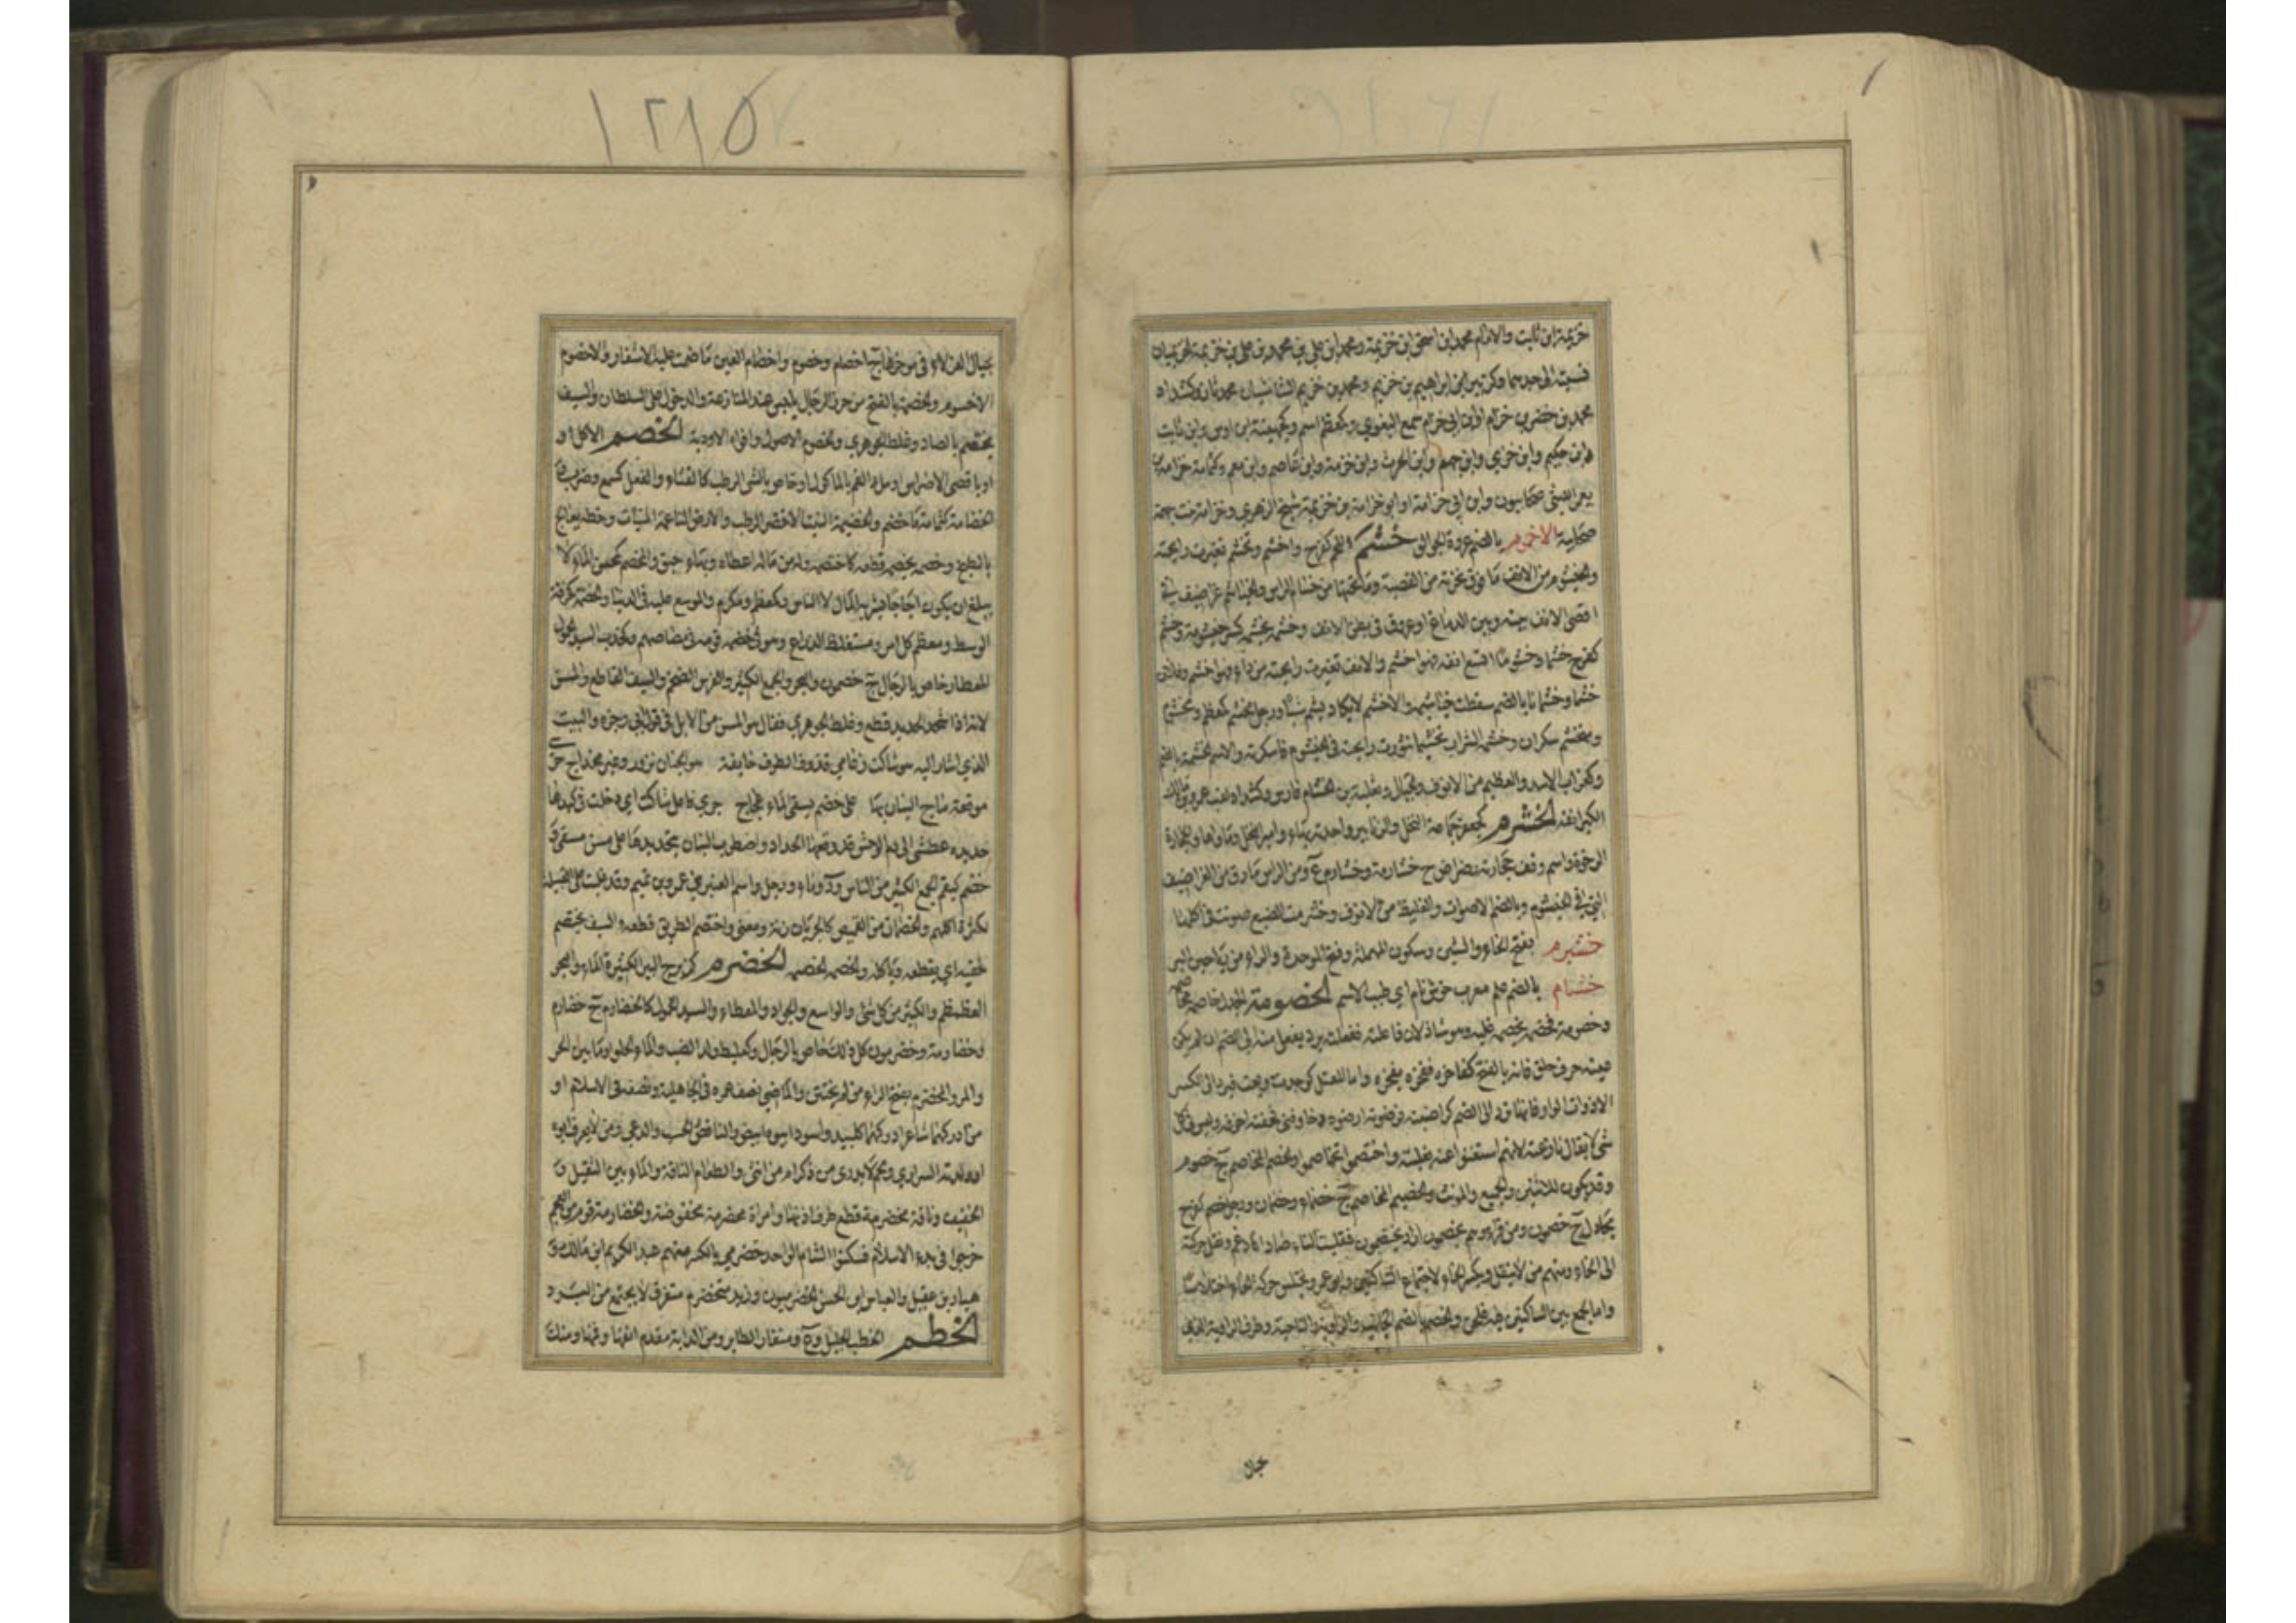 خزيمة ابن ثابت والامام محمد ابن اسحق ابن خزيمة ومحمد ابن علي بن محمد بن علي بن خزيمة الخزيميان
نسبة الى جدهما وكزبير ابن ابراهيم بن خزيم ومحمد بن خزيم الشاشيان محدثان وكشداد
محمد بن خضر بن خزام او ابن ابي خزام سمع البغوي وكمعظم اسم وكجهينة ابن اوس وابن ثابت
وابن حكيم وابن خزي وابن جهم وابن الحرث وابن خزمة وابن عاصم وابن معمر وكثمامة خزامة بن
يعمر الليثي صحابيون وابن ابي خزامة او ابو خزامة بن خزيمة شيخ الزهري وخزامة بنت جهمة
صحابية الاخموم بالضم عروة الجوالق خشم اللحم كفرح واخشم وتخشم تغيرت رايحته
والخيشوم من الانف ما فوق نخرته من القصبة وما تحتها من خشام الراس والخياشيم غراضيف في
اقصى الانف بينه وبين الدماغ او عروق في بطن الانف وخشمه يخشمه كسر خيشومه وخشم
كفرح خشما وخشوما اتسع انفه فهو اخشم والانف تغيرت رايحته من داء فهو اخشم وفلان
خشما وخشاما بالضم سقطت خياشيمه والاخشم لا يكاد يشم شيأ ورجل مخشم كمعظم ومخشوم
ومتخشم سكران وخشمه الشراب تخشيما تثورت رايحته في الخيشوم فاسكرته والاسم الخشمة بالضم
وكغراب الاسد والعظيم من الانوف والجبال وثعلبة بن الخشام فارس وكشداد لقب عمرو بن مالك
الكبر انفه الخشرم كجعفر جماعة النحل والزنابير واحدته بهاء وامير النحل وماواها والحجارة
الرخوة واسم وقف حجارته رضراض ج خشارمة وخشارم ع ومن الراس ما رق من الغراضيف
التي في الخيشوم وبالضم الاصوات والغليظ من الانوف وخشرمت الضبع صوتت في اكلها
خشبرم بفتح الخاء والشين وسكون المهملة وفتح الموحدة والراء من رياحين البر
خشنام بالضم علم معرب خوش نام اي طيب الاسم الخصومة الجدل خاصمه مخاصمة
وخصومة فخصمه يخصمه غلبه وهو شاذ لان فاعلته ففعلته يرد يفعل منه الى الضم ان لم يكن
عينه حرف حلق فانه بالفتح كفاخره ففخره يفخره واما المعتل كوجدت وبعت فيرد الى الكسر
الا ذوات الواو فانها ترد الى الضم كراضيته فرضوته ارضوه وخاوفني فخفته اخوفه وليس في كل
شئ لا يقال نازعته لانهم استغنوا عنه بغلبته واختصموا تخاصموا والخصم المخاصم ج خصوم
وقد يكون للاثنين والجميع والمونث والخصيم المخاصم ج خصماء وخصمان ورجل خصم كفرح
مجادل ج خصمون ومن قرأ وهم يخصمون اراد يختصمون فقلبت التاء صادا فادغم ونقل حركته
الى الخاء ومنهم من لا ينقل ويكسر الخاء لاجتماع الساكنين وابو عمرو يختلس حركة الخاء اختلاسا
واما الجمع بين الساكنين فيه فلحن والخصم بالضم الجانب والزاوية والناحية وطرف الراوية الذي
بحيال
بحيال العزلاء في موخرها ج اخصام وخصوم واخصام العين ما ضمت عليه الاشفار والاخصوم
الاخسوم والخصمة بالفتح من حرز الرجال يلبس عند المنازعة والدخول على السلطان والسيف
يختصم بالصاد وغلط الجوهري والخصوم الاصول وافواه الاودية الخضم الاكل او
او باقصى الاضراس او ملء الفم بالماكول او خاص بالشئ الرطب كالقثاء والفعل كسمع وضرب و
الخضامة كثمامة ما خضم والخضيمة النبت الاخضر الرطب والارض الناعمة المنبات وحنطة يعالج
بالطبخ وخضمه يخضمه قطعه كاختضمه وله من ماله اعطاه وبهاء حبق والمخضم كمحسن الماء لا
يبلغ ان يكون اجاجا يشربه المال لا الناس وكمعظم ومكرم والموسع عليه في الدنيا والخضمة كزفنة
الوسط ومعظم كل امر ومستغلظ الذراع وهو في خضمة قومه في مصاصهم وكخدب السيد الحمول
المعطار خاص بالرجال ج خضمون والبحر والجمع الكثير والفرس الضخم والسيف القاطع والمسن
لانه اذا شحذ الحديد قطع وغلط الجوهري فقال هو المسن من الابل في قول ابي وجزة والبيت
الذي اشار اليه هو شاكت رغامي قذوف الطرف خايفة هول الجنان نزور وغير مخداج حرى
موقعة ماج البنان بها على خضم يسقى الماء عجاج حرى فاعل شاكت اي دخلت في كبدها
حديدة عطشى الى دم الوحش قد وقعها الحداد واضطرب البنان بتحديدها على مسن مسقى و
خضم كبقم الجمع الكثير من الناس ود وماء ورجل واسم العنبر بن عمرو بن تميم وقد غلبت على القبيلة
لكثرة اكلهم والخضمان من القميص كالجربان زنة ومعنى واختضم الطريق قطعه والسيف يختضم
جفنه اي يقطعه وياكله والخضمة الخضم الخضرم كزبرج البير الكثيرة الماء والبحر
العظمطم والكثير من كل شئ والواسع والجواد والمعطاء والسيد الحمول كالخضارم ج خضارم
وخضارمة وخضرمون كل ذلك خاص بالرجال وكعلبط ولد الضب والماء الحلو او ما بين الحلو
والمر والمخضرم بفتح الراء من لم يختتن والماضي نصف عمره في الجاهلية ونصفه في الاسلام او
من ادركهما شاعرا ادركهما كلبيد واسود ابوه ابيض والناقص الحسب والدعي ومن لا يعرف ابوه
او ولدته السراري ولحم لا يدرى من ذكر ام من انثى والطعام التافه والماء بين الثقيل و
الخفيف وناقة مخضرمة قطع طرف اذنها وامراة مخضرمة مخفوضة والخضارمة قوم من العجم
خرجوا في بدء الاسلام فسكنوا الشام الواحد خضرمي بالكسر منهم عبد الكريم ابن مالك و
هبار بن عقيل والعباس ابن الحسن الخضرميون وزبد متخضرم متفرق لا يجتمع من البرد
الخطم الخطب الجليل وع ومنقار الطاير ومن الدابة مقدم انفها وفمها ومنك